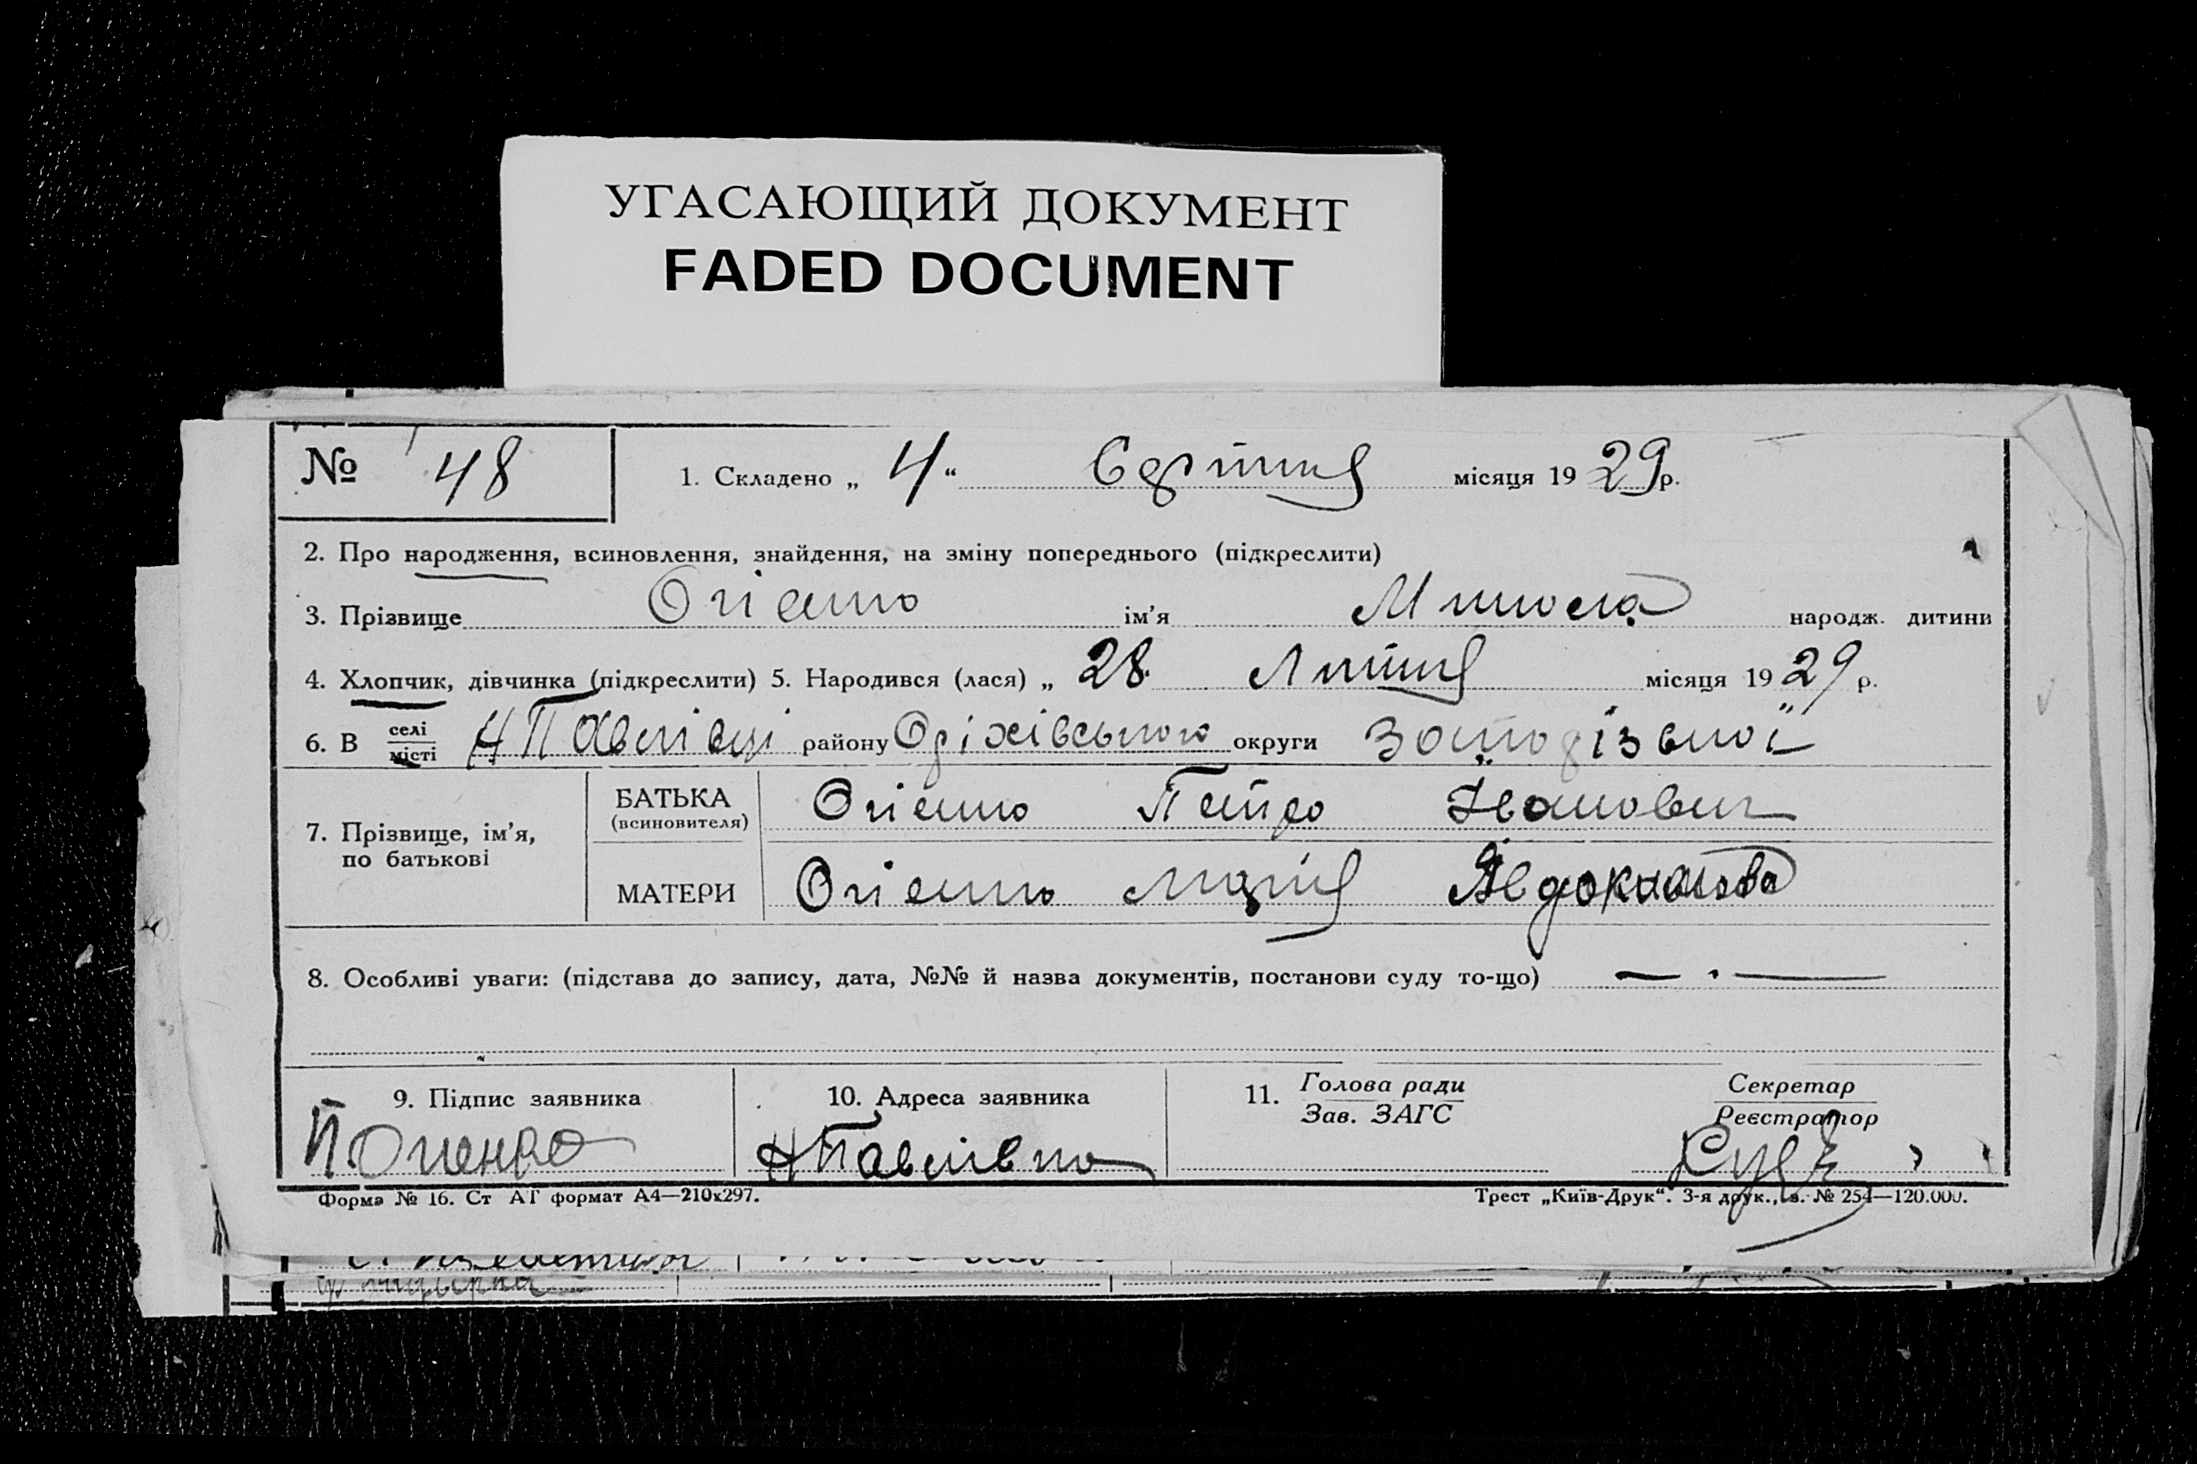 УГАСАЮЩИЙ ДОКУМЕНТ
FADED DOCUMENT
№ 48
1. Складено „ 4 “ Серпня місяця 19 29 р.
2. Про народження, всиновлення, знайдення, на зміну попереднього (підкреслити)
3. Прізвище Огієнко ім’я Микола народж. дитини
4. Хлопчик, дівчинка (підкреслити) 5. Народився (лася) „ 28 Липня місяця 19 29 р.
6. В селі місті Н Павлівці району Оріхівського округи Запорізької
7. Прізвище, ім’я, по батькові
БАТЬКА (всиновителя) Огієнко Петро Іванович
МАТЕРИ Огієнко Марія
8. Особливі уваги: (підстава до запису, дата, №№ й назва документів, постанови суду то-що)
9. Підпис заявника
10. Адреса заявника
11. Голова ради
Зав. ЗАГС
Секретар
Реєстратор
П. Огиенко
Н Павлівка
Форма № 16. Ст АТ формат А4—210х297.
Трест „Київ-Друк“. 3-я друк., з. № 254—120.000.